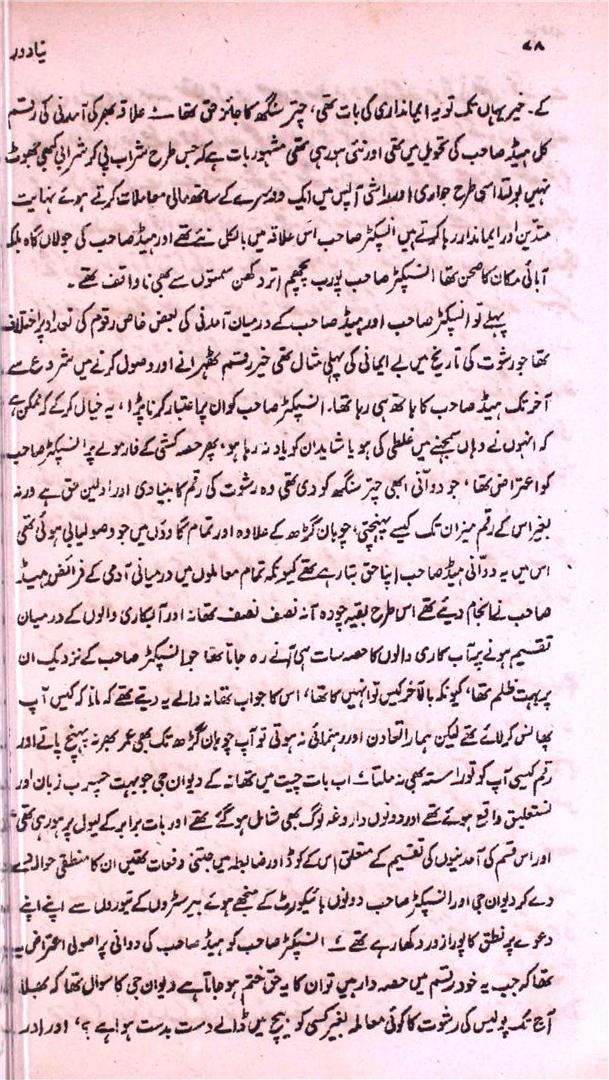 ۷۸
نیا دور
کے۔ خیر یہاں تک تو یہ ایمانداری کی بات تھی، چتر سنگھ کا جائز حق تھا۔ علاقہ بھر کی آمدنی کی رقم
کل ہیڈ صاحب کی تحویل میں تھی اور نتی ہو رہی تھی مشہور بات ہے کہ جس طرح شراب پی کو شرابی کبھی جھوٹ
نہیں بولتا اسی طرح جواری اور راشی آپس میں ایک دوسرے کے ساتھ مالی معاملات کرتے ہوئے نہایت
متدین اور ایماندار رہا کرتے ہیں انسپکٹر صاحب اس علاقہ میں بالکل نئے تھے اور ہیڈ صاحب کی جولاں گاہ بلکہ
آبائی مکان کا صحن تھا انسپکٹر صاحب پورب پچھم اتر دکھن سمتوں سے بھی ناواقف تھے۔
پہلے تو انسپکٹر صاحب اور ہیڈ صاحب کے درمیان آمدنی کی بعض خاص رقوم کی تعداد پر اختلاف
تھا جو رشوت کی تاریخ میں بے ایمانی کی پہلی مثال تھی خیر رقم ٹھہرانے اور وصول کرنے میں شروع سے
آخر تک ہیڈ صاحب کا ہاتھ ہی رہا تھا۔ انسپکٹر صاحب کو ان پر اعتبار کرنا پڑا، یہ خیال کر کے کہ ممکن ہے
کہ انہوں نے وہاں سمجھنے میں غلطی کی ہو یا شاید ان کو یاد نہ رہا ہو، پھر حصہ کشی کے فارمولے پر انسپکٹر صاحب
کو اعتراض تھا، جو دوآنی ابھی چتر سنگھ کو دی تھی وہ رشوت کی رقم کا بنیادی اور اولین حق ہے ورنہ
بغیر اس کے رقم میزان تک کیسے پہنچتی، چوہان گڑھ کے علاوہ اور تمام گاؤوں میں جو وصولیابی ہوئی تھی
اس میں یہ دوآنی ہیڈ صاحب اپنا حق بتا رہے تھے کیونکہ تمام معاملوں میں درمیانی آدمی کے فرائض ہیڈ
صاحب نے انجام دیئے تھے اس طرح بقیہ چودہ آنہ نصف نصف تھانہ اور آبکاری والوں کے درمیان
تقسیم ہونے پر آب کاری والوں کا حصہ سات ہی آنے رہ جاتا تھا جو انسپکٹر صاحب کے نزدیک ان
پر بہت ظلم تھا، کیونکہ بالآخر کیس تو انہیں کا تھا، اس کا جواب تھانہ والے یہ دیتے تھے کہ مانا کہ کیس آپ
پھانس کر لائے تھے لیکن ہمارا تعاون اور رہنمائی نہ ہوتی تو آپ چوہان گڑھ تک بھی عمر بھر نہ پہنچ پاتے اور
رقم کیسی آپ کو تو راستہ بھی نہ ملتا۔ اب بات چیت میں تھانہ کے دیوان جی جو بہت چرب زبان اور
نستعلیق واقع ہوئے تھے اور دونوں داروغہ لوگ بھی شامل ہو گئے تھے اور بات برابر کے لیول پر ہو رہی تھی
اور اس قسم کی آمدنیوں کی تقسیم کے متعلق اس کے کوڈ اور ضابطہ میں جتنی دفعات تھیں ان کا منطقی حوالہ دے
دے کر دیوان جی اور انسپکٹر صاحب دونوں ہائیکورٹ کے منجھے ہوئے بیرسٹروں کے تیوروں سے اپنے اپنے
دعوے پر نطق کا پورا زور دکھا رہے تھے۔ انسپکٹر صاحب کو ہیڈ صاحب کی دوانی پر اصولی اعتراض یہ
تھا کہ جب یہ خود رقم میں حصہ دار ہیں تو ان کا یہ حق ختم ہو جاتا ہے دیوان جی کا سوال تھا کہ بھلا
آج تک پولیس کی رشوت کا کوئی معاملہ بغیر کسی کو بیچ میں ڈالے دست بدست ہوا ہے؟، اور ادر